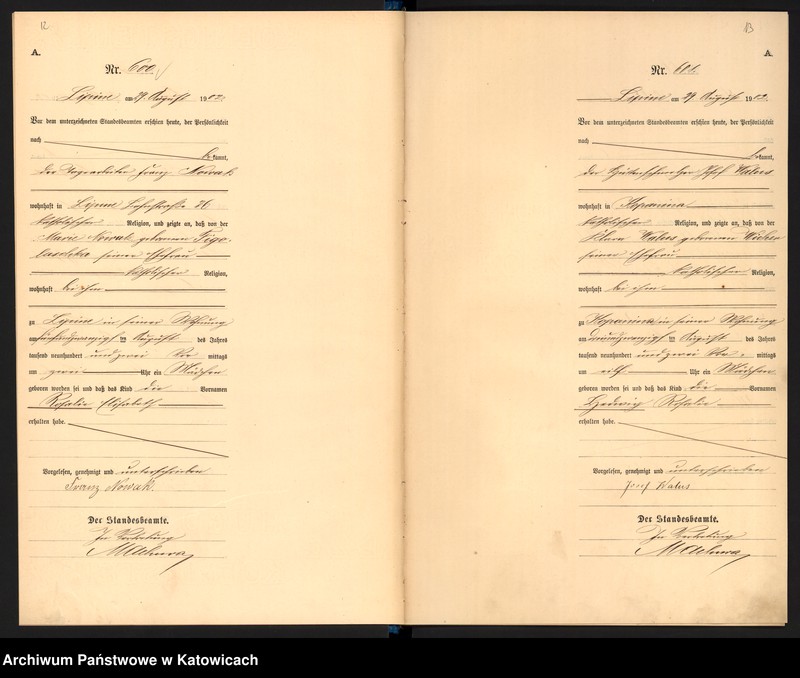 12
A.
Nr. 600.
Lipine am 29. August 1902
Vor dem unterzeichneten Standesbeamten erschien heute, der Persönlichkeit
nach
be kannt,
der Tagearbeiter Franz Nowak
wohnhaft in Lipine 26
katholischer Religion, und zeigte an, daß von der
Marie Nowak geborenen
seiner Ehefrau
katholischer Religion,
wohnhaft bei ihm
zu Lipine in seiner Wohnung
am fünfundzwanzigsten August des Jahres
tausend neunhundert und zwei Vor mittags
um zwei Uhr ein Mädchen
geboren worden sei und daß das Kind die Vornamen
Rosalie Elisabeth
erhalten habe.
Vorgelesen, genehmigt und unterschrieben
Franz Nowak.
Der Standesbeamte.
In Vertretung
Machura
13
A.
Nr. 601.
Lipine am 29. August 1902
Vor dem unterzeichneten Standesbeamten erschien heute, der Persönlichkeit
nach
be kannt,
der Josef Walus
wohnhaft in Kopanina
katholischer Religion, und zeigte an, daß von der
Klara Walus geborenen
seiner Ehefrau
katholischer Religion,
wohnhaft bei ihm
zu Kopanina in seiner Wohnung
am dreiundzwanzigsten August des Jahres
tausend neunhundert und zwei Vor mittags
um elf Uhr ein Mädchen
geboren worden sei und daß das Kind die Vornamen
Hedwig Rosalie
erhalten habe.
Vorgelesen, genehmigt und unterschrieben
Josef Walus
Der Standesbeamte.
In Vertretung
Machura
Archiwum Państwowe w Katowicach